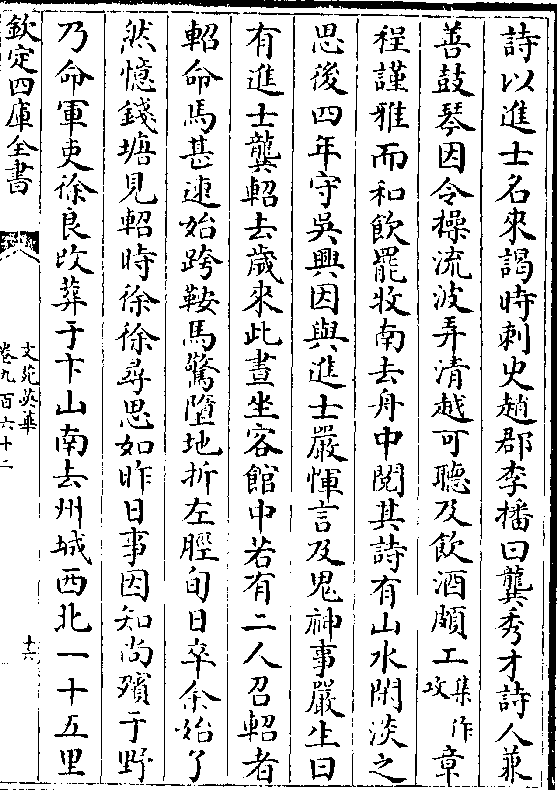 詩以進士名來謁時刺史趙郡李播曰龔秀才詩人兼
善鼓琴因令操流波弄清越可聽及飲酒頗工集作攻章
程謹雅而和飲罷牧南去舟中閱其詩有山水閑淡之
思後四年守吳興因與進士嚴惲言及鬼神事嚴生曰
有進士龔軺去歲來此晝坐客館中若有二人召軺者
軺命馬甚速始跨鞍馬驚墮地折左脛旬日卒余始了
然憶錢塘見軺時徐徐尋思如昨日事因知尚殯于野
乃命軍吏徐良改葬于卞山南去州城西北一十五里
欽定四庫全書
文苑英華
卷九百六十二
十六